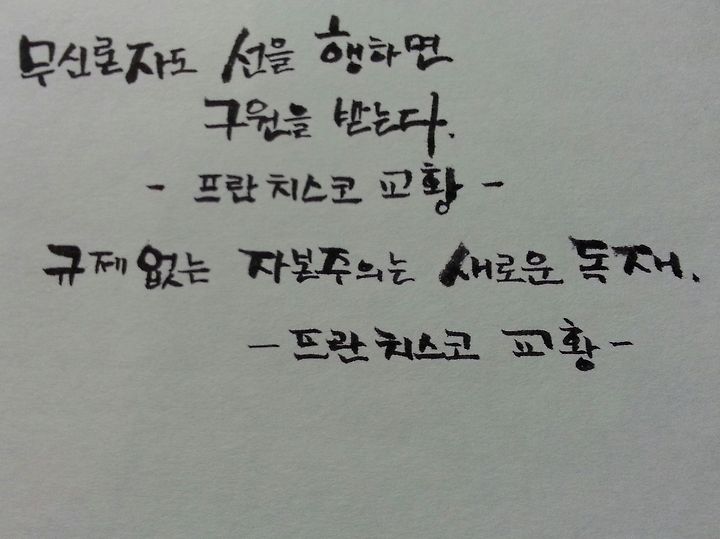 무신론자도 선을 행하면
구원을 받는다.
- 프란치스코 교황 -
규제 없는 자본주의는 새로운 독재.
- 프란치스코 교황 -